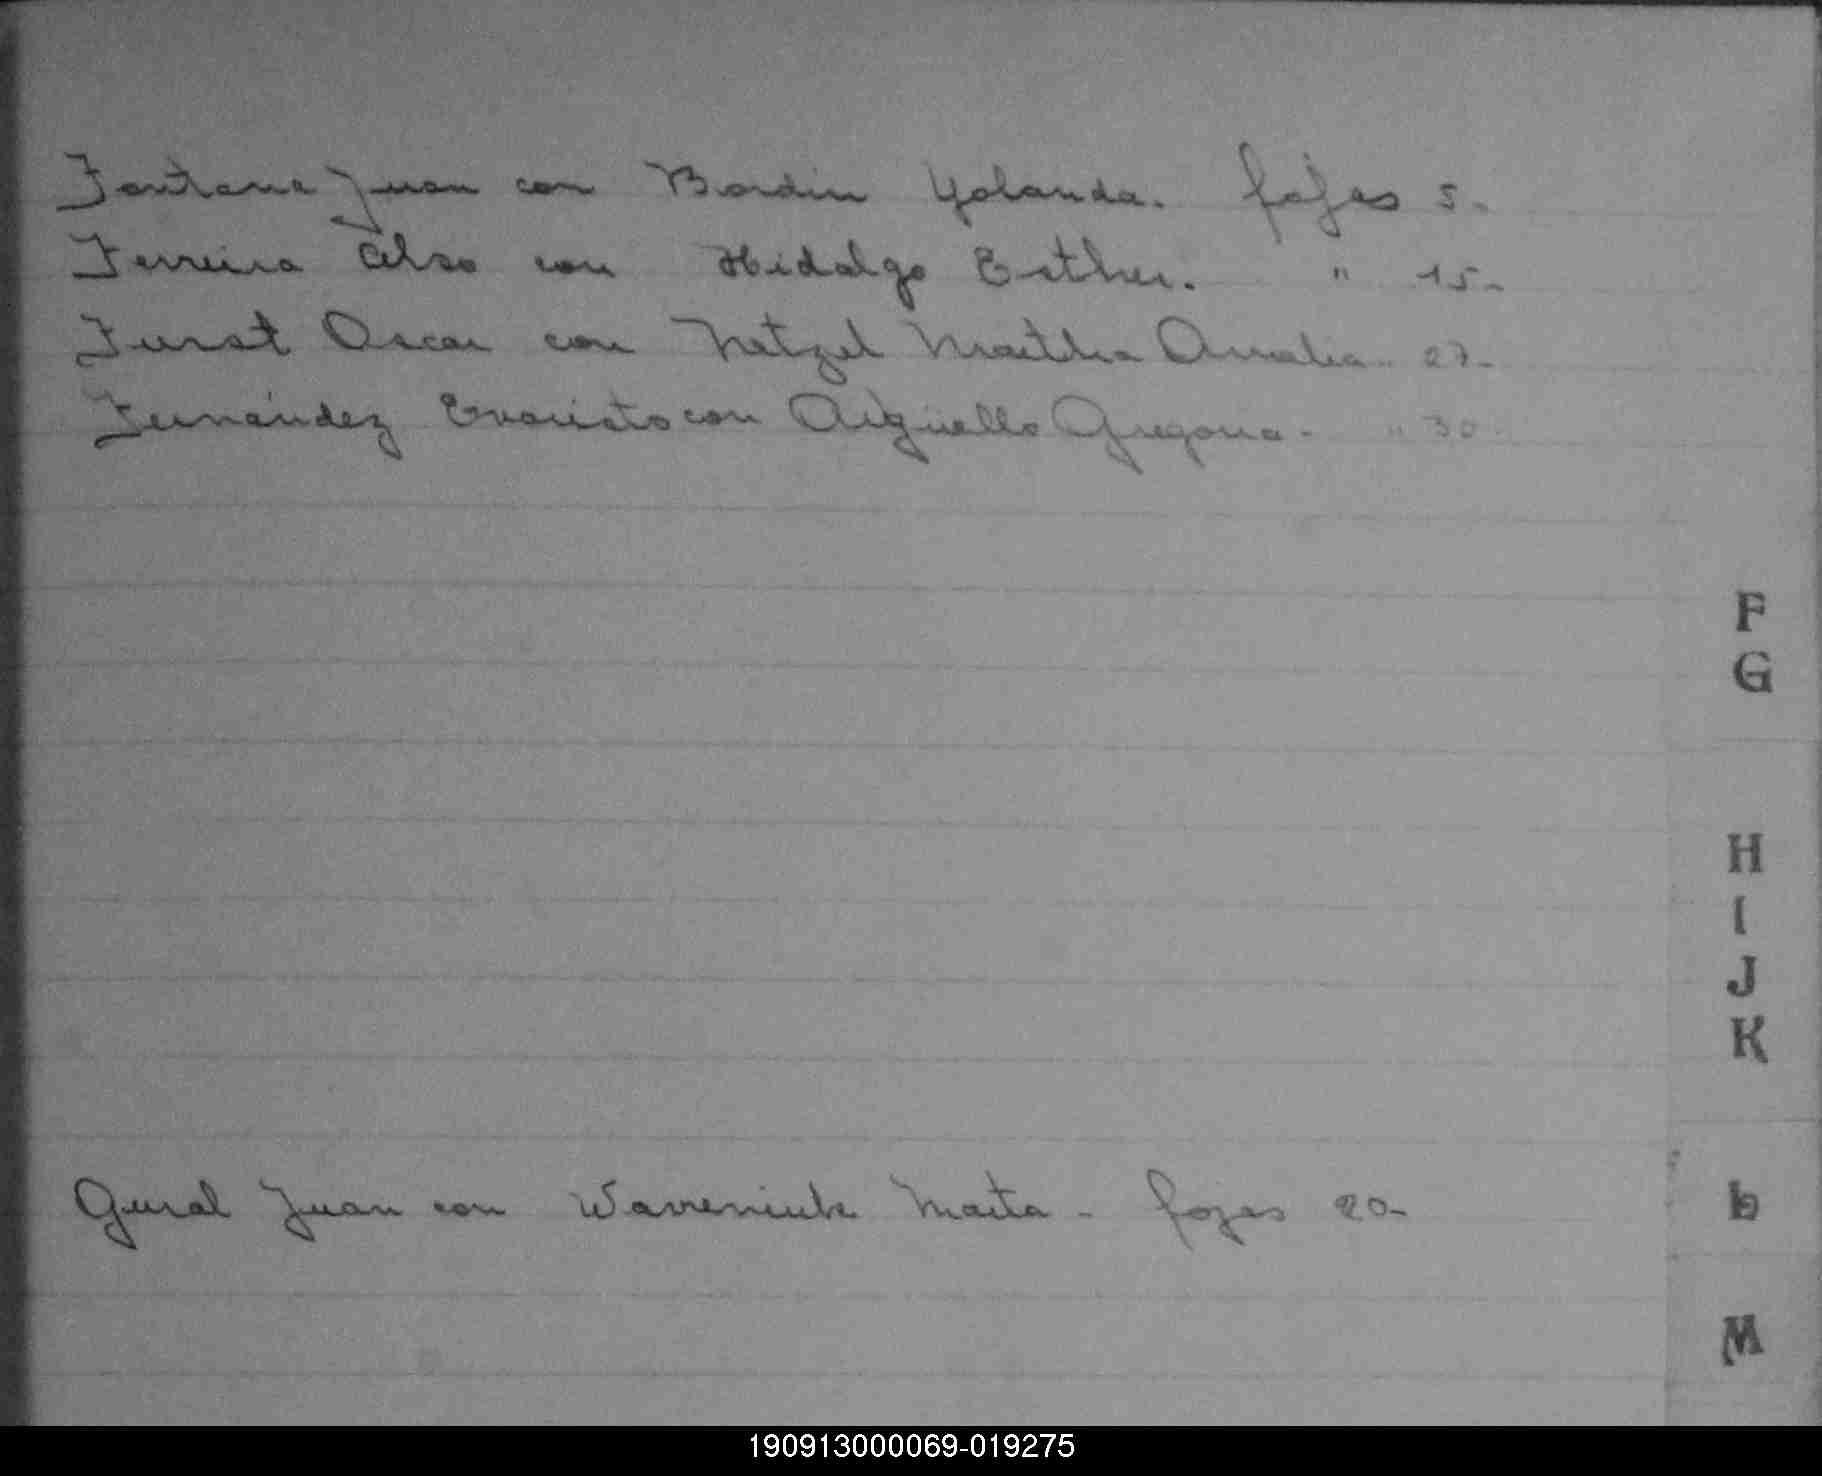 Fontana Juan con Bordin Yolanda. fojas 5.
Ferreira Celso con Hidalgo Esther. " 15.
Furst Oscar con Netzel Martha Amalia.. 27.
Fernández Evaristo con Argüello Gregoria. " 30.
F
G
H
I
J
K
Gural Juan con Wavreniuk Marta - fojas 20-
L
M
190913000069-019275